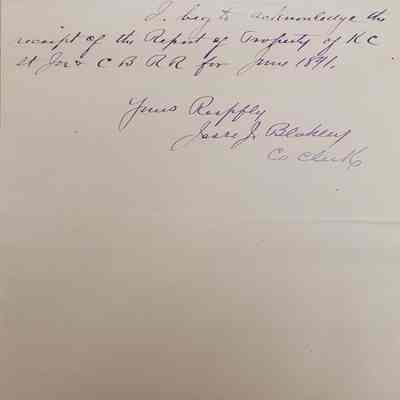 I beg to acknowledge the
receipt of the Report of Property of K C
St Jo & C B R R for June 1891.
Yours Respfly
Jesse J. Blakley
Co Clerk